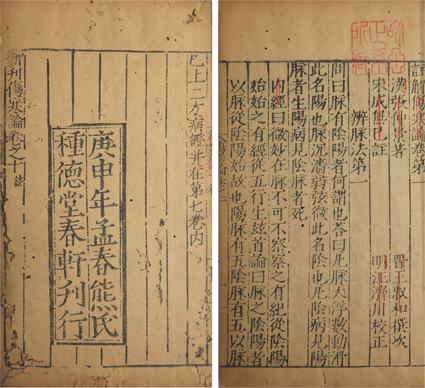 註解傷寒論卷第一
漢張仲景著 晉王叔和撰次
宋成無已註 明汪濟川校正
辨脉法第一
問曰脉有陰陽者何謂也荅曰凡脉大浮數動滑
此名陽也脉沉濇弱弦微此名陰也凡陰病見陽
脉者生陽病見陰脉者死
內經曰微妙在脉不可不察察之有紀從陰陽
始始之有經從五行生兹首論曰脉之陰陽者
以脉從陰陽始故也陽脉有五陰脉有五以脉
已上二方病證并在第七卷內
庚申年孟春熊氏
種德堂春軒刊行
新刊傷寒論卷之十